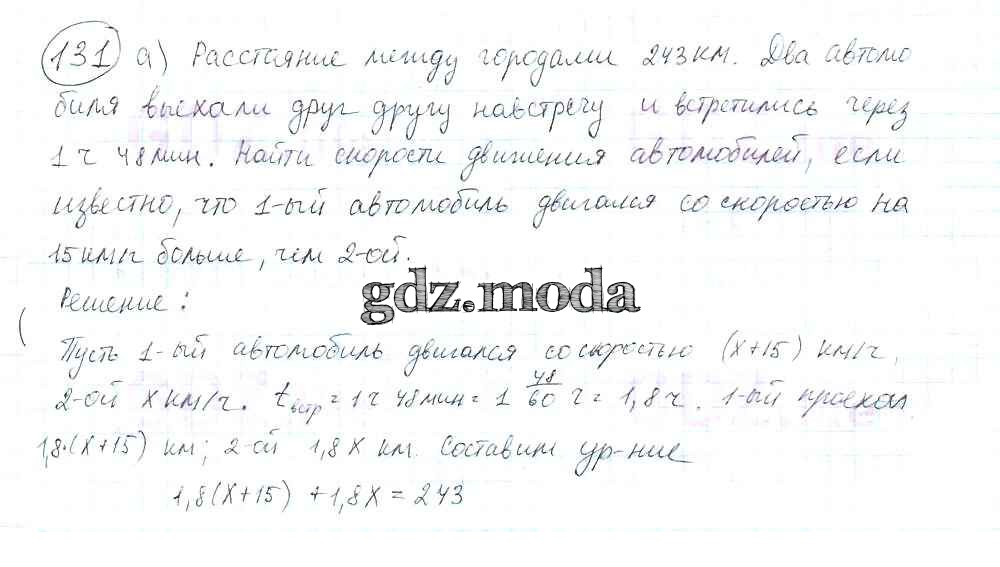 131 а) Расстояние между городами 243 км. Два автомо
биля выехали друг другу навстречу и встретились через
1 ч 48 мин. Найти скорости движения автомобилей, если
известно, что 1-ый автомобиль двигался со скоростью на
15 км/ч больше, чем 2-ой.
gdz.moda
Решение:
Пусть 1-ый автомобиль двигался со скоростью (х+15) км/ч,
2-ой х км/ч. tвстр = 1 ч 48 мин = 1 48/60 ч = 1,8 ч. 1-ый проехал
1,8·(х+15) км; 2-ой 1,8х км. Составим ур-ние
1,8(х+15) + 1,8х = 243